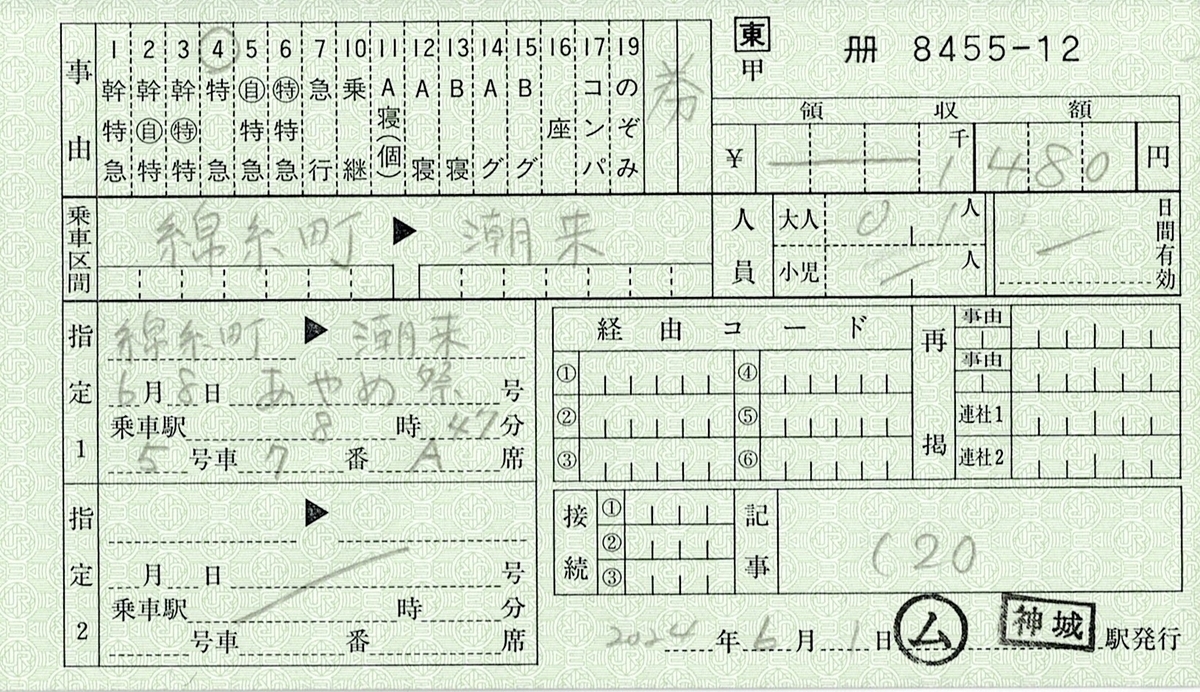 事由
1 幹特急
2 幹自特
3 幹特急
④ 特急
5 自特急
6 特特急
7 急行
10 乗継
11 A寝(個)
12 A寝
13 B寝
14 Aグ
15 Bグ
16 座
17 コンパ
19 のぞみ
券
東
甲
冊 8455-12
領収額
¥ 千 1480 円
乗車区間 綿糸町 ▶ 潮来
人員 大人 0 1 人
小児 人
日間有効
指定1 綿糸町 ▶ 潮来
6月8日 あやめ祭 号
乗車駅 8時47分
5号車 7番 A席
指定2 ▶
月 日 号
乗車駅 時 分
号車 番 席
経由コード
① ④
② ⑤
③ ⑥
再掲
事由
事由
連社1
連社2
接続 ① ② ③
記事 (20
2024年6月1日 ム 神城 駅発行